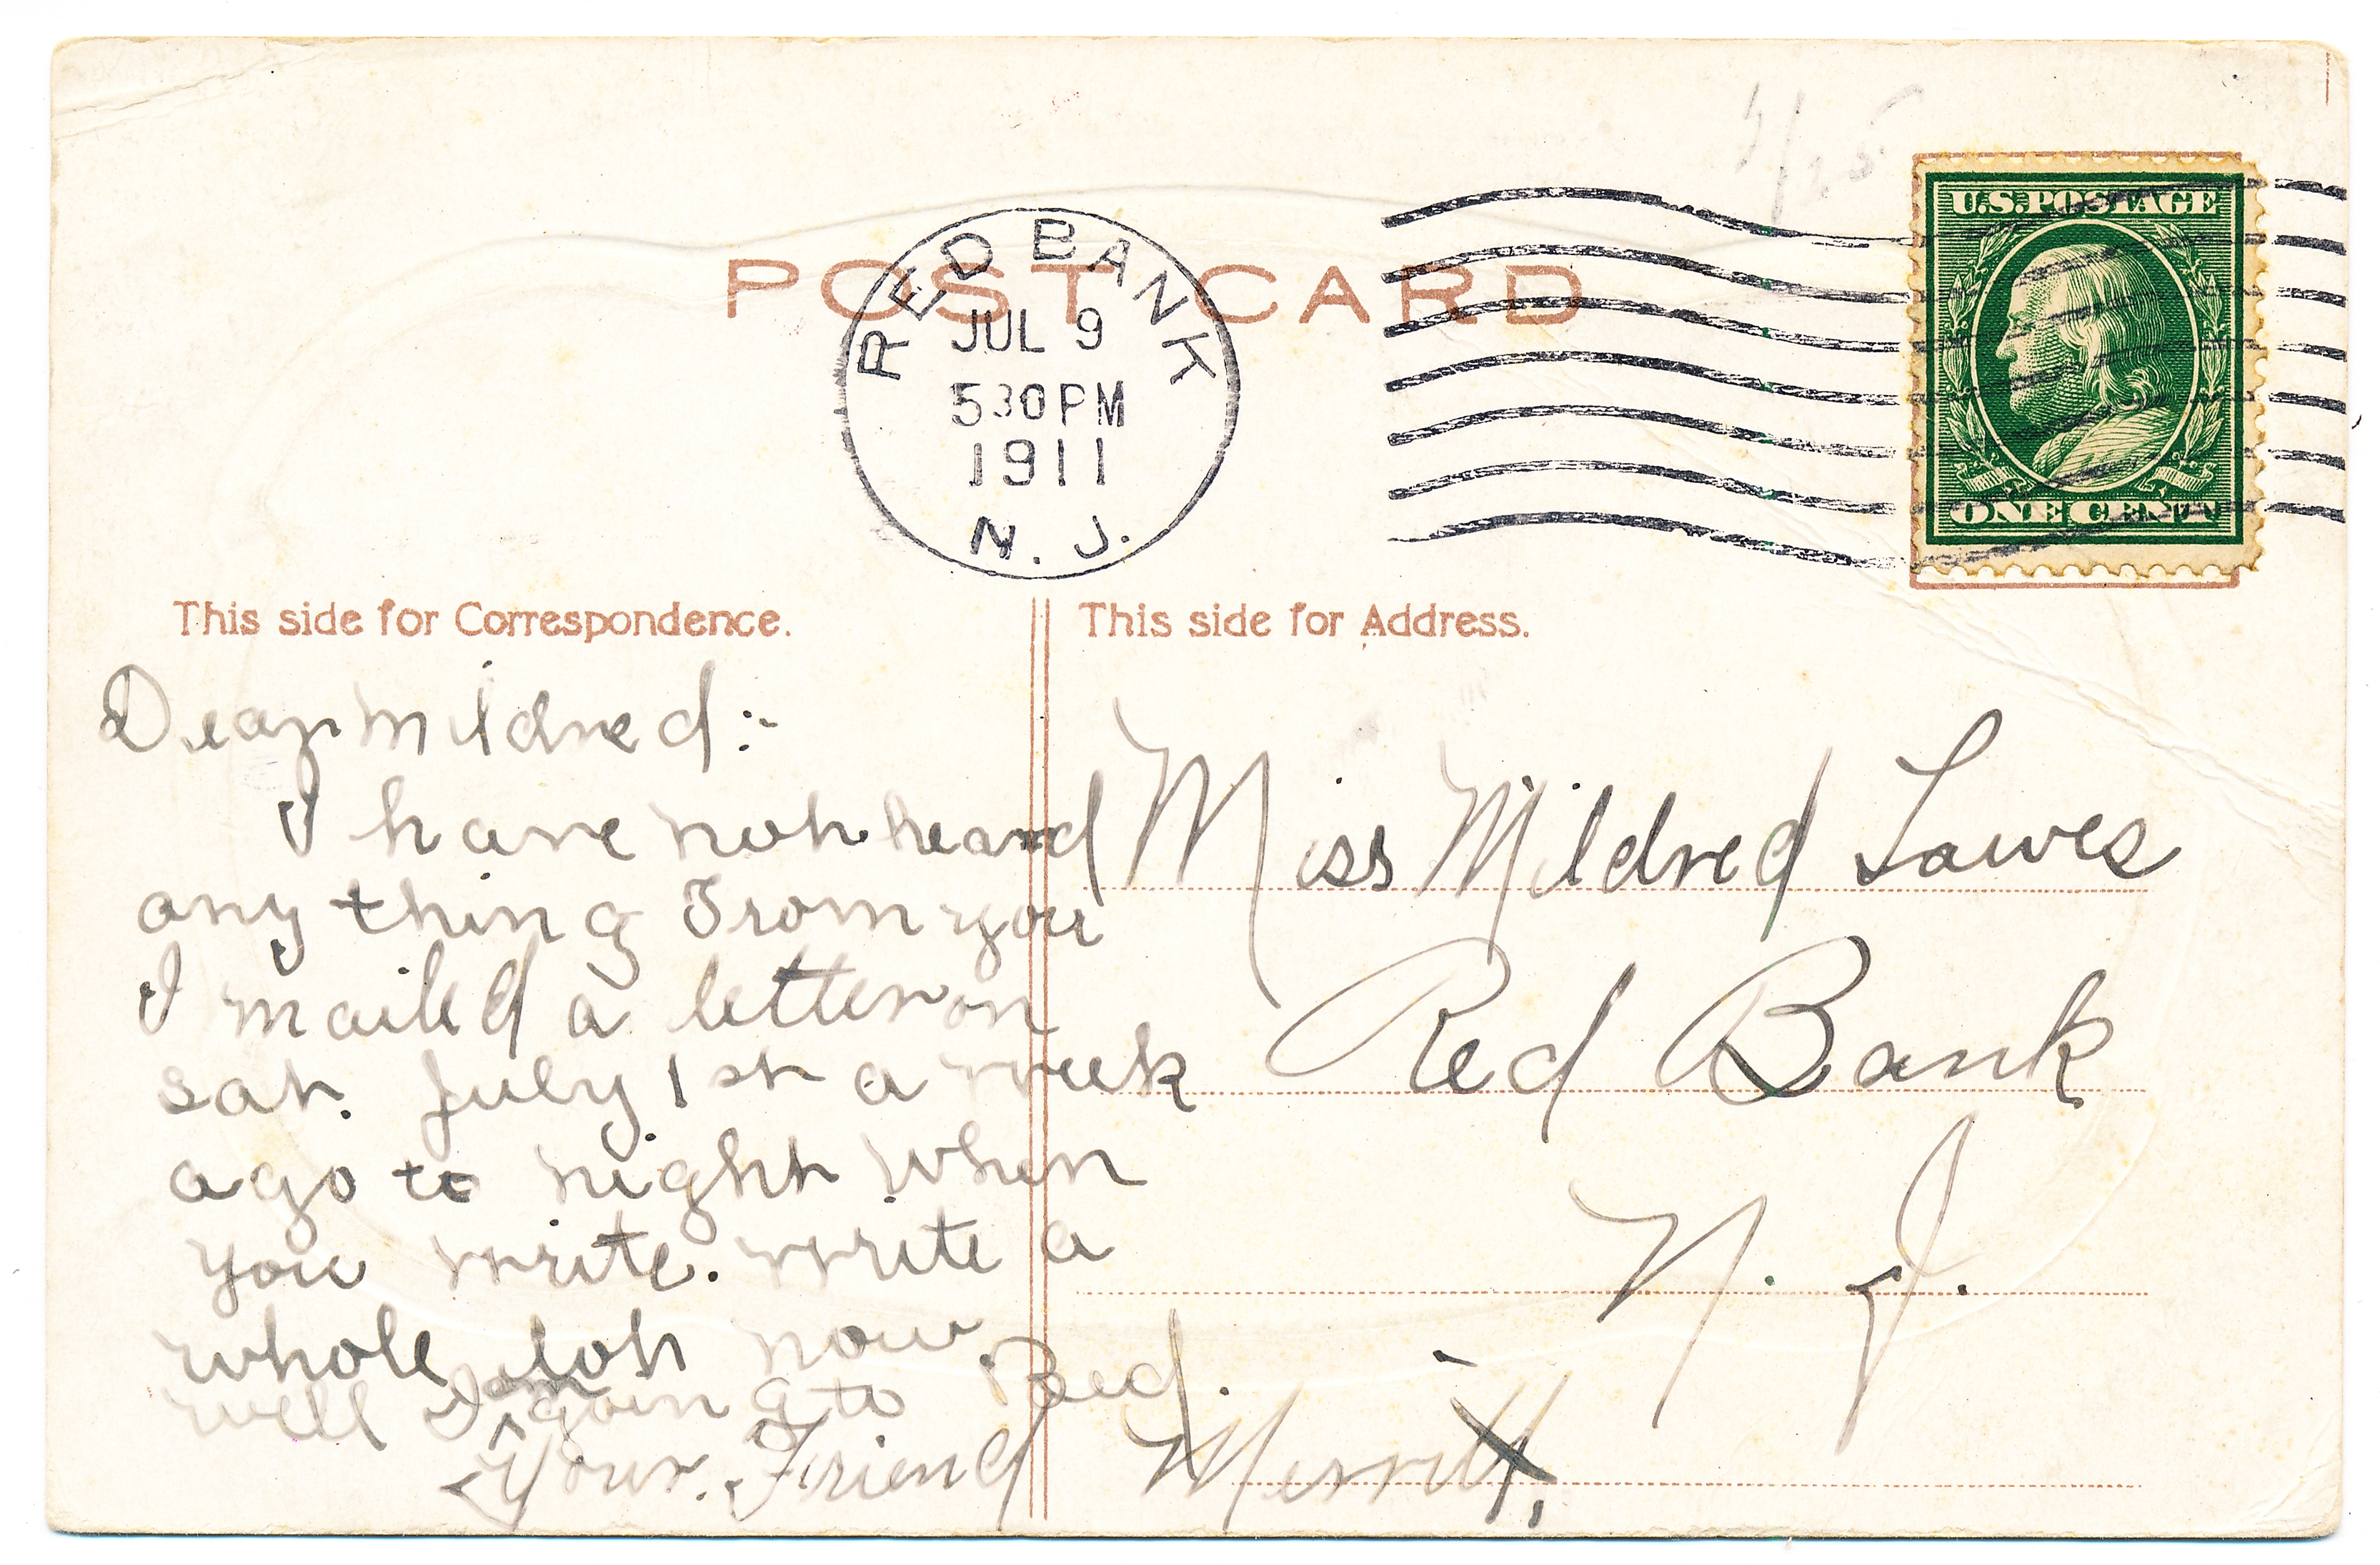 U.S. POSTAGE
ONE CENT
POST CARD
RED BANK
JUL 9
530 PM
1911
N. J.
This side for Correspondence.
This side for Address.
Dear Mildred:-
I have not heard
any thing From you
I mailed a letter on
sat. July 1st a week
ago to night. When
you write. write a
whole lot now.
well I am going to Bed.
Your. Friend Merritt,
Miss Mildred Lawes
Red Bank
N. J.